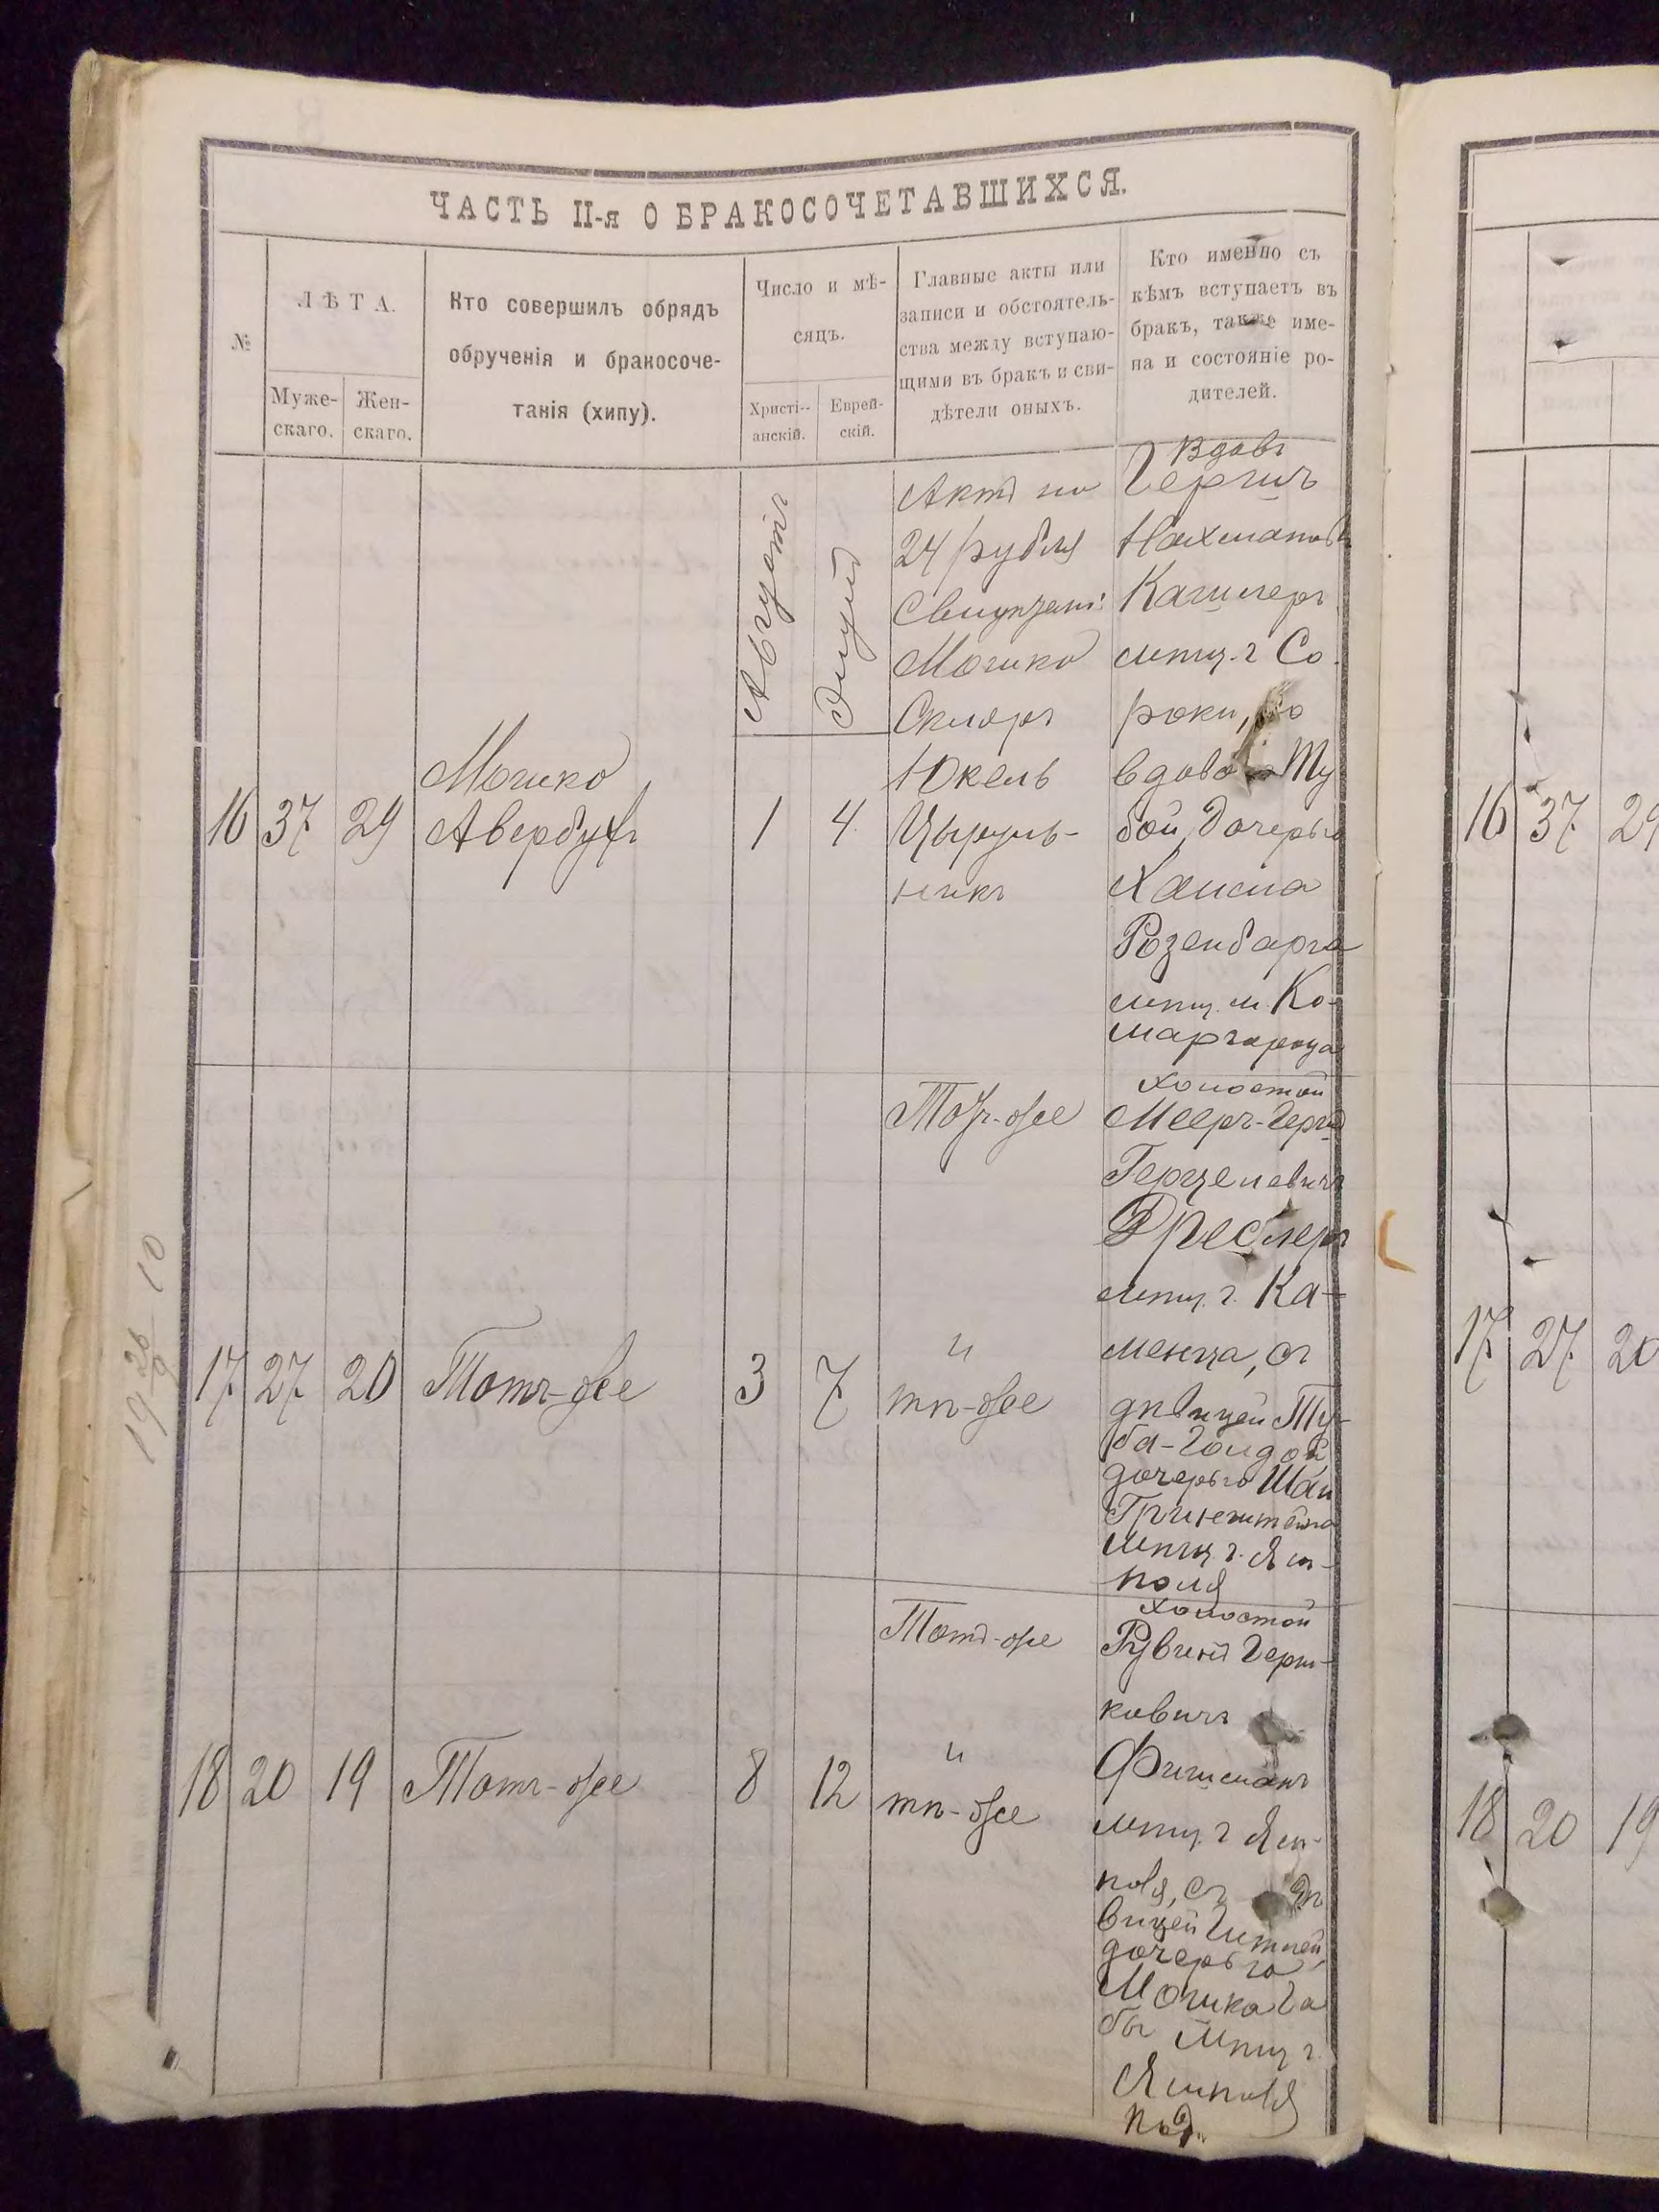 ЧАСТЬ II-я О БРАКОСОЧЕТАВШИХСЯ.
№
ЛѢТА.
Муже-
скаго.
Жен-
скаго.
Кто совершилъ обрядъ
обрученія и бракосоче-
танія (хипу).
Число и мѣ-
сяцъ.
Христі-
анскій.
Еврей-
скій.
Главные акты или
записи и обстоятель-
ства между вступаю-
щими въ бракъ и сви-
дѣтели оныхъ.
Кто именно съ
кѣмъ вступаетъ въ
бракъ, также име-
на и состояніе ро-
дителей.
16
37
29
Мошко
Авербухъ
Августъ
Элулъ
1
4
Актъ на
24 рубля
Мошко
Скляръ
Юкель
Цыруль-
никъ
Вдовъ
Гершъ
мѣщ. г Со
роки, со
вдово Ту
бой, дочерью
Хаима
Розенбарга
мѣщ. м. Ко-
маргарода
17
27
20
Тотъ-же
3
7
Тотъ-же
и
тѣ-же
холостой
Мееръ-Герш
Герцелевичъ
Дреслеръ
мѣщ. г. Ка-
менца, съ
дѣвицей Ту-
ба-Голдой
дочерью Шаи
Гринштейна
мѣщ. г. Ям-
поля
18
20
19
Тотъ-же
8
12
Тотъ-же
и
тѣ-же
холостой
Рувинъ Герш-
ковичъ
Фишманъ
мѣщ. г Ям-
поля, съ дѣ
вицей
дочерью
Мошка Га
бы мѣщ г.
Ямполя
19 26/9 10
16
37
29
17
27
20
18
20
19